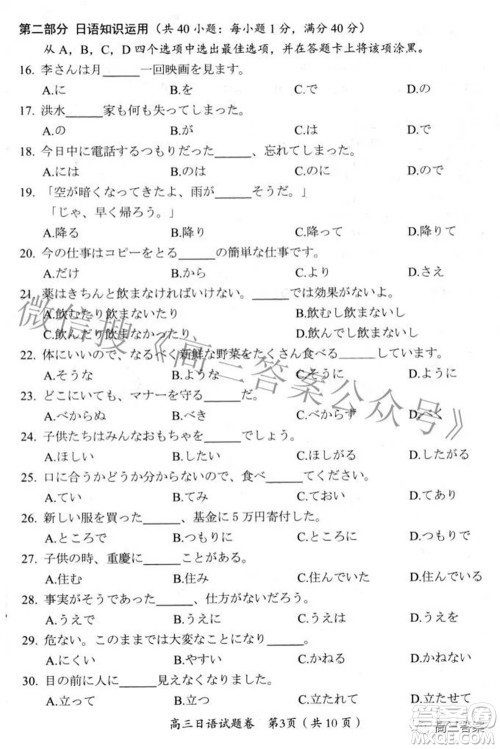 第二部分 日语知识运用（共 40 小题：每小题 1 分，满分 40 分）
从 A、B、C、D 四个选项中选出最佳选项，并在答题卡上将该项涂黑。
16. 李さんは月______一回映画を見ます。
A.に B.を C.は D.の
17. 洪水______家も何も失ってしまった。
A.の B.が C.で D.は
18. 今日中に電話するつもりだった______、忘れてしまった。
A.には B.では C.とは D.のに
19. 「空が暗くなってきたよ、雨が______そうだ。」
「じゃ、早く帰ろう。」
A.降る B.降り C.降って D.降った
20. 今の仕事はコピーをとる______の簡単な仕事です。
A.だけ B.から C.より D.さえ
21. 薬はきちんと飲まなければいけない。______では効果がないよ。
A.飲むたり飲まないたり B.飲むし飲まないし
C.飲んだり飲まなかったり D.飲むにしろ飲まないにしろ
22. 体にいいので、なるべく新鮮な野菜をたくさん食べる______している。
A.そうな B.そうに C.ような D.ように
23. どこにいても、マナーを守る______だ。
A.べからぬ B.べき C.はず D.べからず
24. 子供たちは、みんなお菓子を______でしょう。
A.ほしい B.したい C.ほしがる D.したがる
25. 口に合うかどうか分からないが、食べ______てください。
A.てい B.てみ C.ておい D.てしまい
26. 新しい服を買った______、基金に 5 万円を寄付した。
A.ところで B.ところに C.つもりで D.つもりに
27. 子供の時、重慶に______ことがある。
A.住む B.住み C.住んで D.住んだ
28. 事実がそうであった______、仕方がないだろう。
A.うえ B.うえで C.うえは D.うえを
29. 危ない。このままでは大変なことになり______。
A.にくい B.きる C.かねる D.かねない
30. 目の前に人に______、何も見えない。
A.立って B.立った C.立たせて D.立たれて
高三日语试题卷 第3页（共 10 页）
微信搜《高三答案公众号》
高三答案